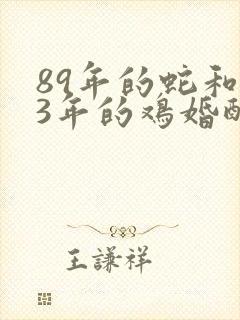 89年的蛇和
3年的鸡婚
王謙祥